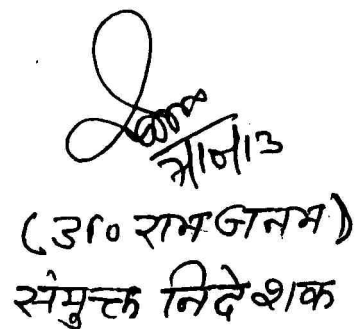 (डा० राम जनम)
संयुक्त निदेशक